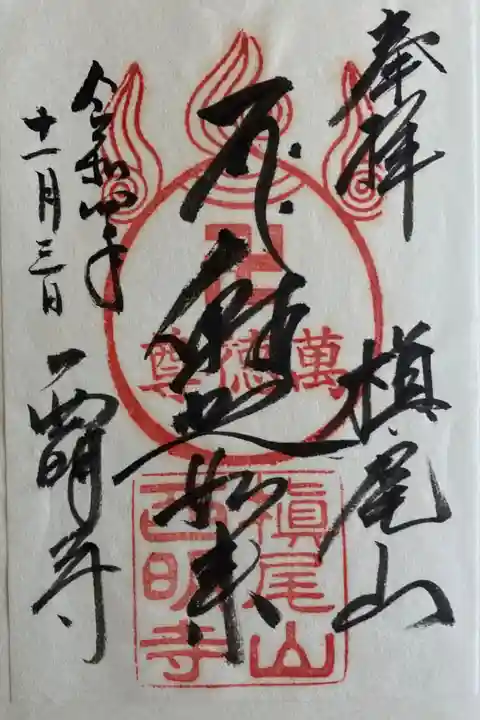 奉拝
槇尾山
釋迦如来
卍
萬徳尊
槇尾山
西明寺
令和四年
十一月三日
西明寺